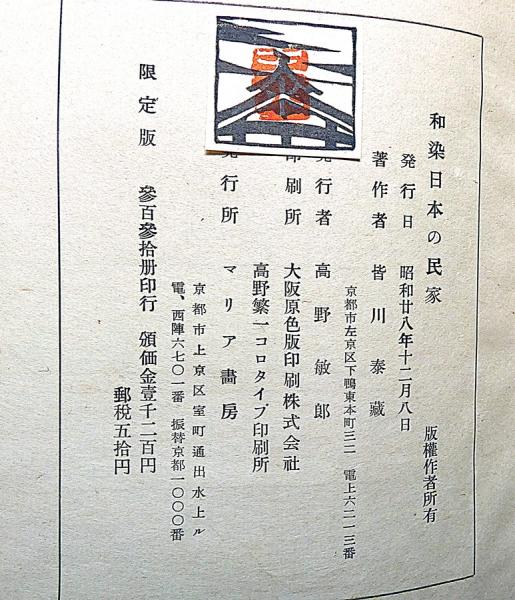 和染日本の民家
版權作者所有
発行日 昭和廿八年十二月八日
著作者 皆川泰藏
京都市左京区下鴨東本町三二 電上六二一三番
発行者 高野敏郎
印刷所 大阪原色版印刷株式会社
高野繁一コロタイプ印刷所
発行所 マリア畵房
京都市上京区室町通出水上ル
電、西陣六七〇一番 振替京都一〇〇〇番
限定版 參百參拾册印行 頒価金壹千二百円
郵税五拾円